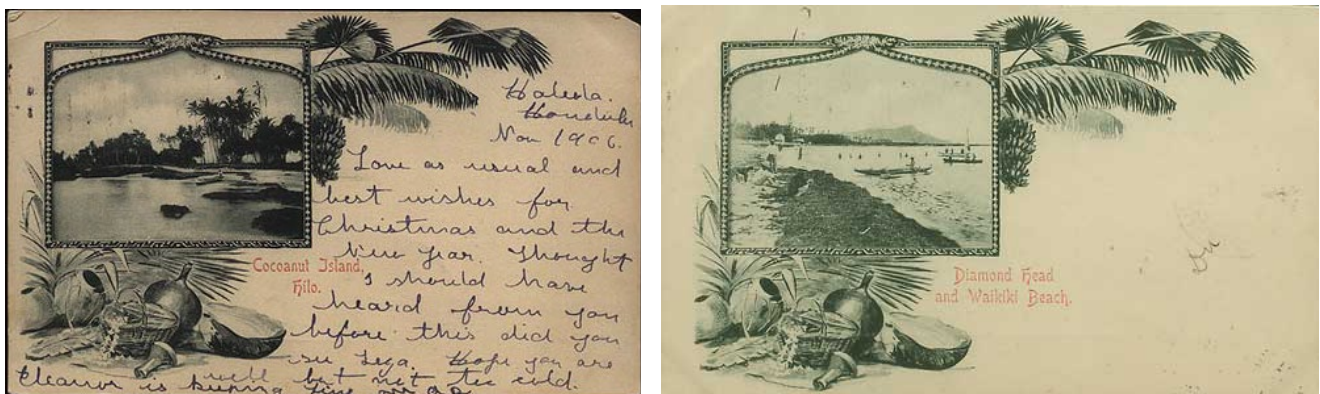 Honolulu
Nov 1906.
Love as usual and
best wishes for
Christmas and the
New Year. Thought
I should have
heard from you
before this did you
see
Hope you are
well but not too cold.
Eleanor is keeping
Cocoanut Island,
Hilo.
Diamond Head
and Waikiki Beach.